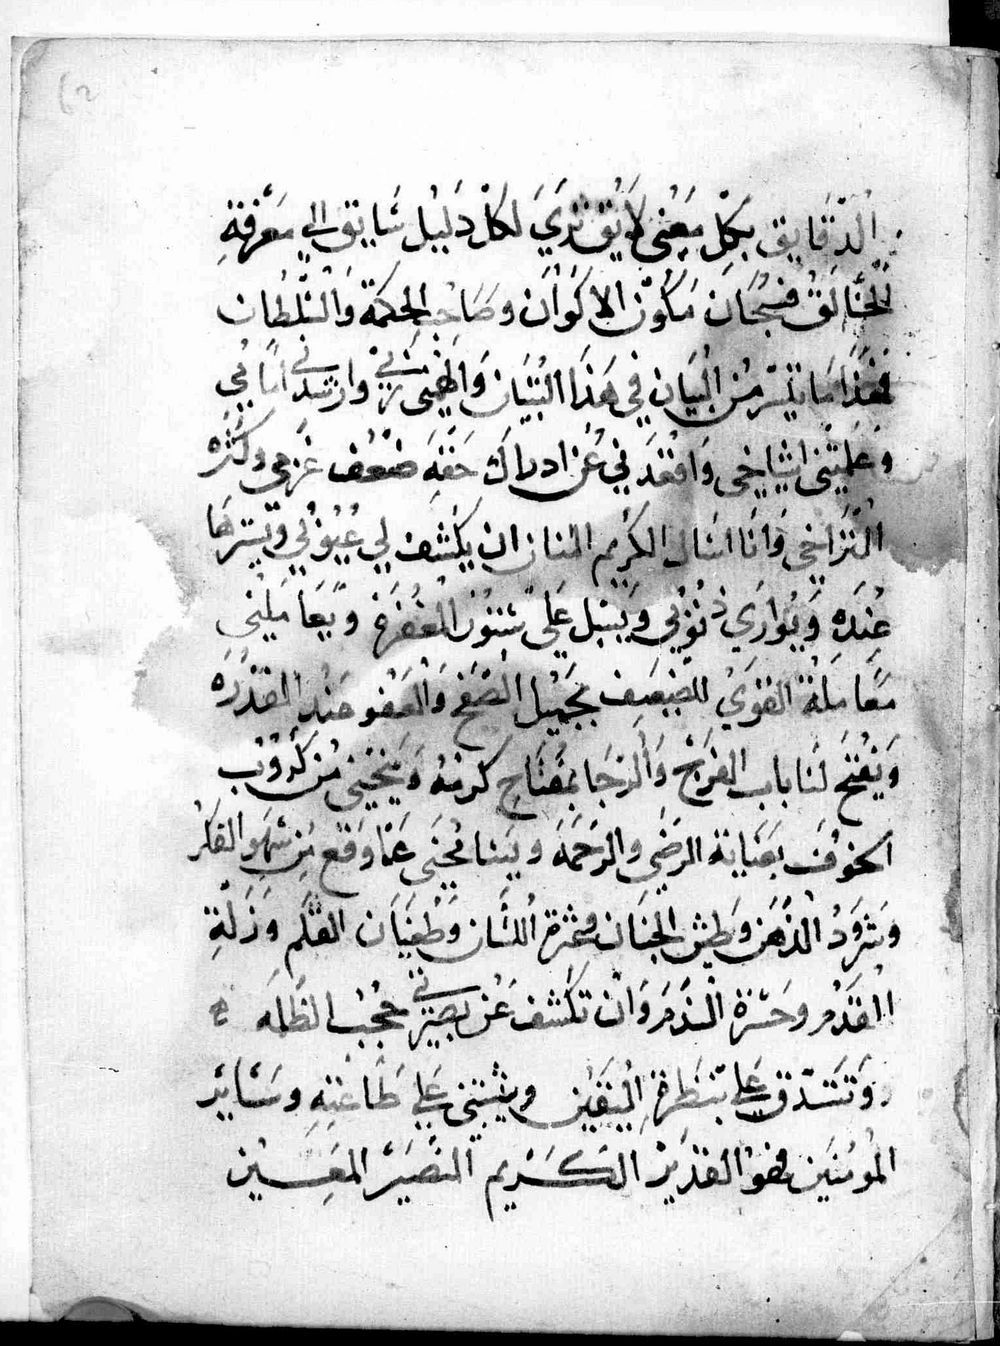 الدقايق بكل معنى لايق تري لكل دليل سايق الي معرفة
الخالق فسبحان مكون الاكوان وصاحب الحكمة والسلطان
فهذا ما تيسر من البيان في هذا التبيان والهمني ربي وارشدني امامي
وعلمتني اشياخي واقعدني عن ادراك حقه ضعف عزمي وكثره
التراخي وانا اسال الكريم المنان ان يكشف لي عيوبي ويسترها
عنده ويواري ذنوبي ويسبل علي ستور المغفرة ويعاملني
معاملة القوي للضعيف بجميل الصفح والعفو عند المقدره
ويفتح لنا باب الفرج والرجا بمفتاح كرمه وينجيني من كروب
الخوف بعناية الرضى والرحمة ويسامحني عما وقع من سهو الفكر
وشرود الذهن وطيش الجنان وعثرة اللسان وطغيان القلم وزلة
القدم وحسرة الندم وان تكشف عن بصيرتي حجب الظلمه
وتتسدق علي بنظرة اليقين ويثبتني علي طاعته وسساير
المومنين فهو القدير الكريم النصير المعين